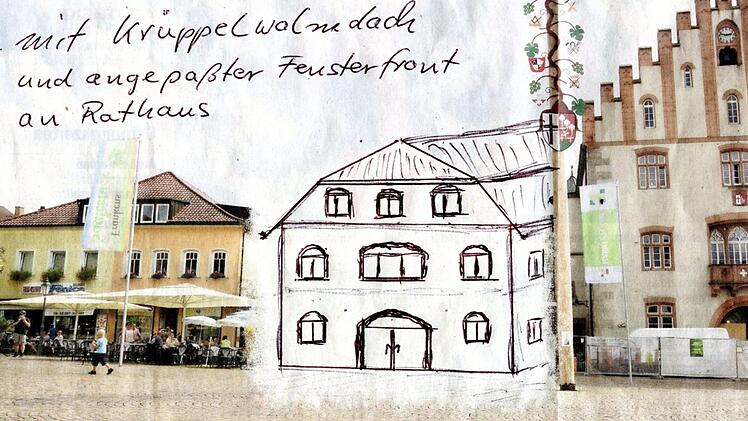 mit Krüppelwalmdach
und angepaßter Fensterfront
an Rathaus
Frankens